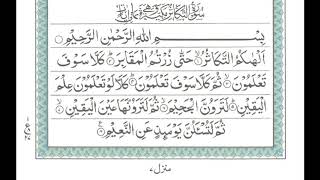 بِسْمِ اللهِ الرَّحْمٰنِ الرَّحِيْمِ
اَلْهٰىكُمُ التَّكَاثُرُ حَتّٰى زُرْتُمُ الْمَقَابِرَ كَلَّا سَوْفَ
تَعْلَمُوْنَ ثُمَّ كَلَّا سَوْفَ تَعْلَمُوْنَ كَلَّا لَوْ تَعْلَمُوْنَ عِلْمَ
الْيَقِيْنِ لَتَرَوُنَّ الْجَحِيْمَ ثُمَّ لَتَرَوُنَّهَا عَيْنَ الْيَقِيْنِ
ثُمَّ لَتُسْـَٔلُنَّ يَوْمَئِذٍ عَنِ النَّعِيْمِ
منزل ۷